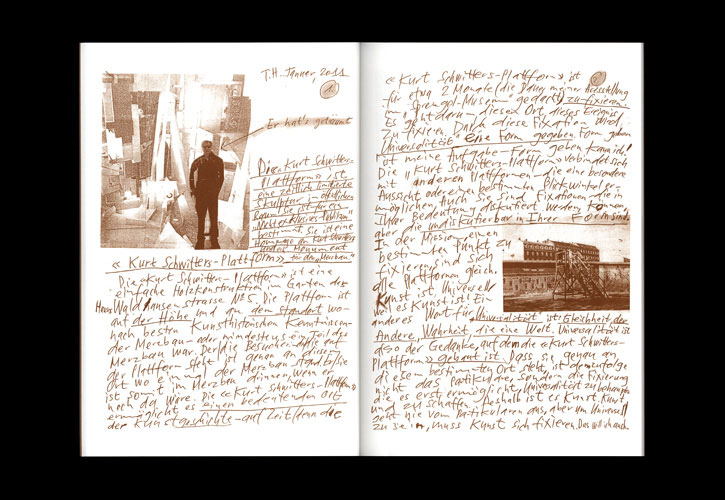 T.H. Januar, 2011
1
Er hat's geträumt
Die « Kurt Schwitters-
Plattform » ist
eine zeitlich limitierte
Skulptur im öffentlichen
Raum. Sie ist für ein
"Nicht-exklusives Publikum"
bestimmt. Sie ist eine
Hommage an Kurt Schwitters
und ein Monument
für den "Merzbau"
« Kurt Schwitters-Plattform »
Die « Kurt Schwitters-Plattform » ist eine
einfache Holzkonstruktion im Garten des
Haus Waldhausenstrasse N°5. Die Plattform ist
auf der Höhe und an dem Standort wo-
nach besten Kunsthistorischen Kenntnissen-
der Merzbau- oder mindestens ein Teil des
Merzbau war. Der/die Besucher-in/die auf
der Plattform steht ist genau an dieser
Ort wo einmal der Merzbau stand. Er/sie
ist somit im Merzbau drinnen, wenn er
noch da wäre. Die « Kurt Schwitters-Plattform »
ermöglicht es einen bedeutenden Ort
der Kunstgeschichte - auf Zeit (denn die
« Kurt Schwitters-Plattform » ist
2
für etwa 2 Monate (die Dauer meiner Ausstellung
im Sprengel-Museum gedacht) zu fixieren.
Es geht darum diesen Ort, dieses Ereignis
zu fixieren. Durch diese Fixation wird
Universalität eine Form gegeben. Form geben
ist meine Aufgabe - Form geben kann ich!
Die "Kurt Schwitters-Plattform" verbindet sich
mit anderen Plattformen die eine besondere
Aussicht oder einen bestimmten Blickwinkel er-
möglichen. Auch sie sind Fixationen die in
ihrer Bedeutung diskutiert werden können,
aber die undiskutierbar in Ihrer Form sind.
In der Mission einen
bestimmten Punkt zu
fixieren sind sich
alle Plattformen gleich.
Kunst ist Universell
weil es Kunst ist! Ein
anderes Wort für Universalität ist: Gleichheit, der
Andere, Wahrheit, die eine Welt. Universalität ist
also der Gedanke, auf dem die « Kurt Schwitters-
Plattform » gebaut ist. Dass sie genau an
diesem bestimmten Ort steht, ist demzufolge
nicht das Partikulare, sondern die Fixierung
die es erst ermöglicht Universalität zu behaupten
und zu schaffen. Deshalb ist es Kunst. Kunst
geht nie vom Partikularen aus, aber um Universell
zu sein, muss Kunst sich fixieren. Das will ich auch